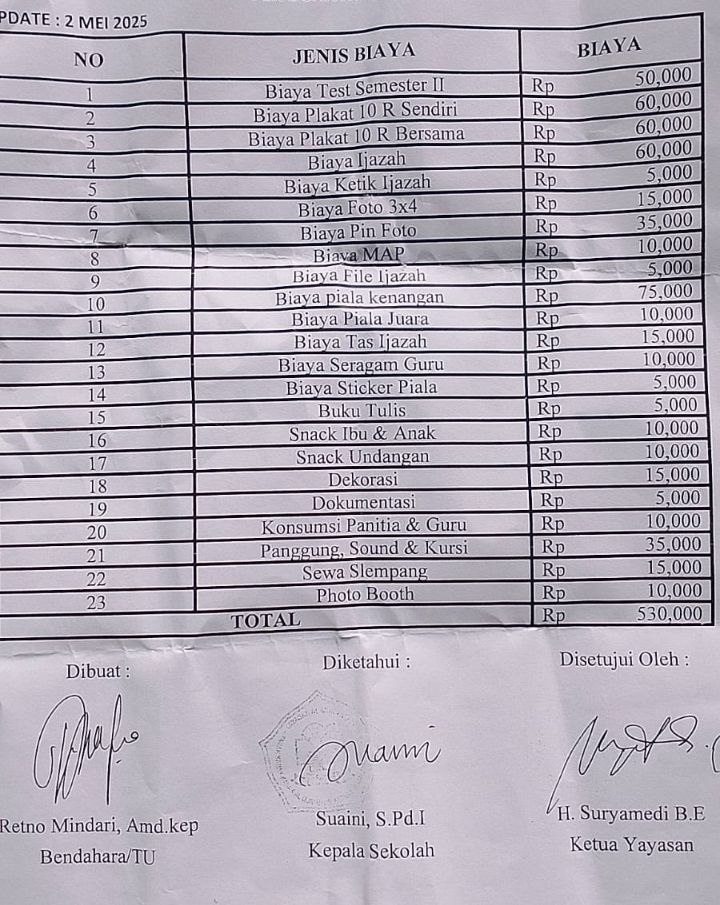 PDATE : 2 MEI 2025
NO JENIS BIAYA BIAYA
1 Biaya Test Semester II Rp 50,000
2 Biaya Plakat 10 R Sendiri Rp 60,000
3 Biaya Plakat 10 R Bersama Rp 60,000
4 Biaya Ijazah Rp 60,000
5 Biaya Ketik Ijazah Rp 5,000
6 Biaya Foto 3x4 Rp 15,000
7 Biaya Pin Foto Rp 35,000
8 Biaya MAP Rp 10,000
9 Biaya File Ijazah Rp 5,000
10 Biaya piala kenangan Rp 75,000
11 Biaya Piala Juara Rp 10,000
12 Biaya Tas Ijazah Rp 15,000
13 Biaya Seragam Guru Rp 10,000
14 Biaya Sticker Piala Rp 5,000
15 Buku Tulis Rp 5,000
16 Snack Ibu & Anak Rp 10,000
17 Snack Undangan Rp 10,000
18 Dekorasi Rp 15,000
19 Dokumentasi Rp 5,000
20 Konsumsi Panitia & Guru Rp 10,000
21 Panggung, Sound & Kursi Rp 35,000
22 Sewa Slempang Rp 15,000
23 Photo Booth Rp 10,000
TOTAL Rp 530,000
Dibuat : Diketahui : Disetujui Oleh :
Retno Mindari, Amd.kep Suaini, S.Pd.I H. Suryamedi B.E
Bendahara/TU Kepala Sekolah Ketua Yayasan